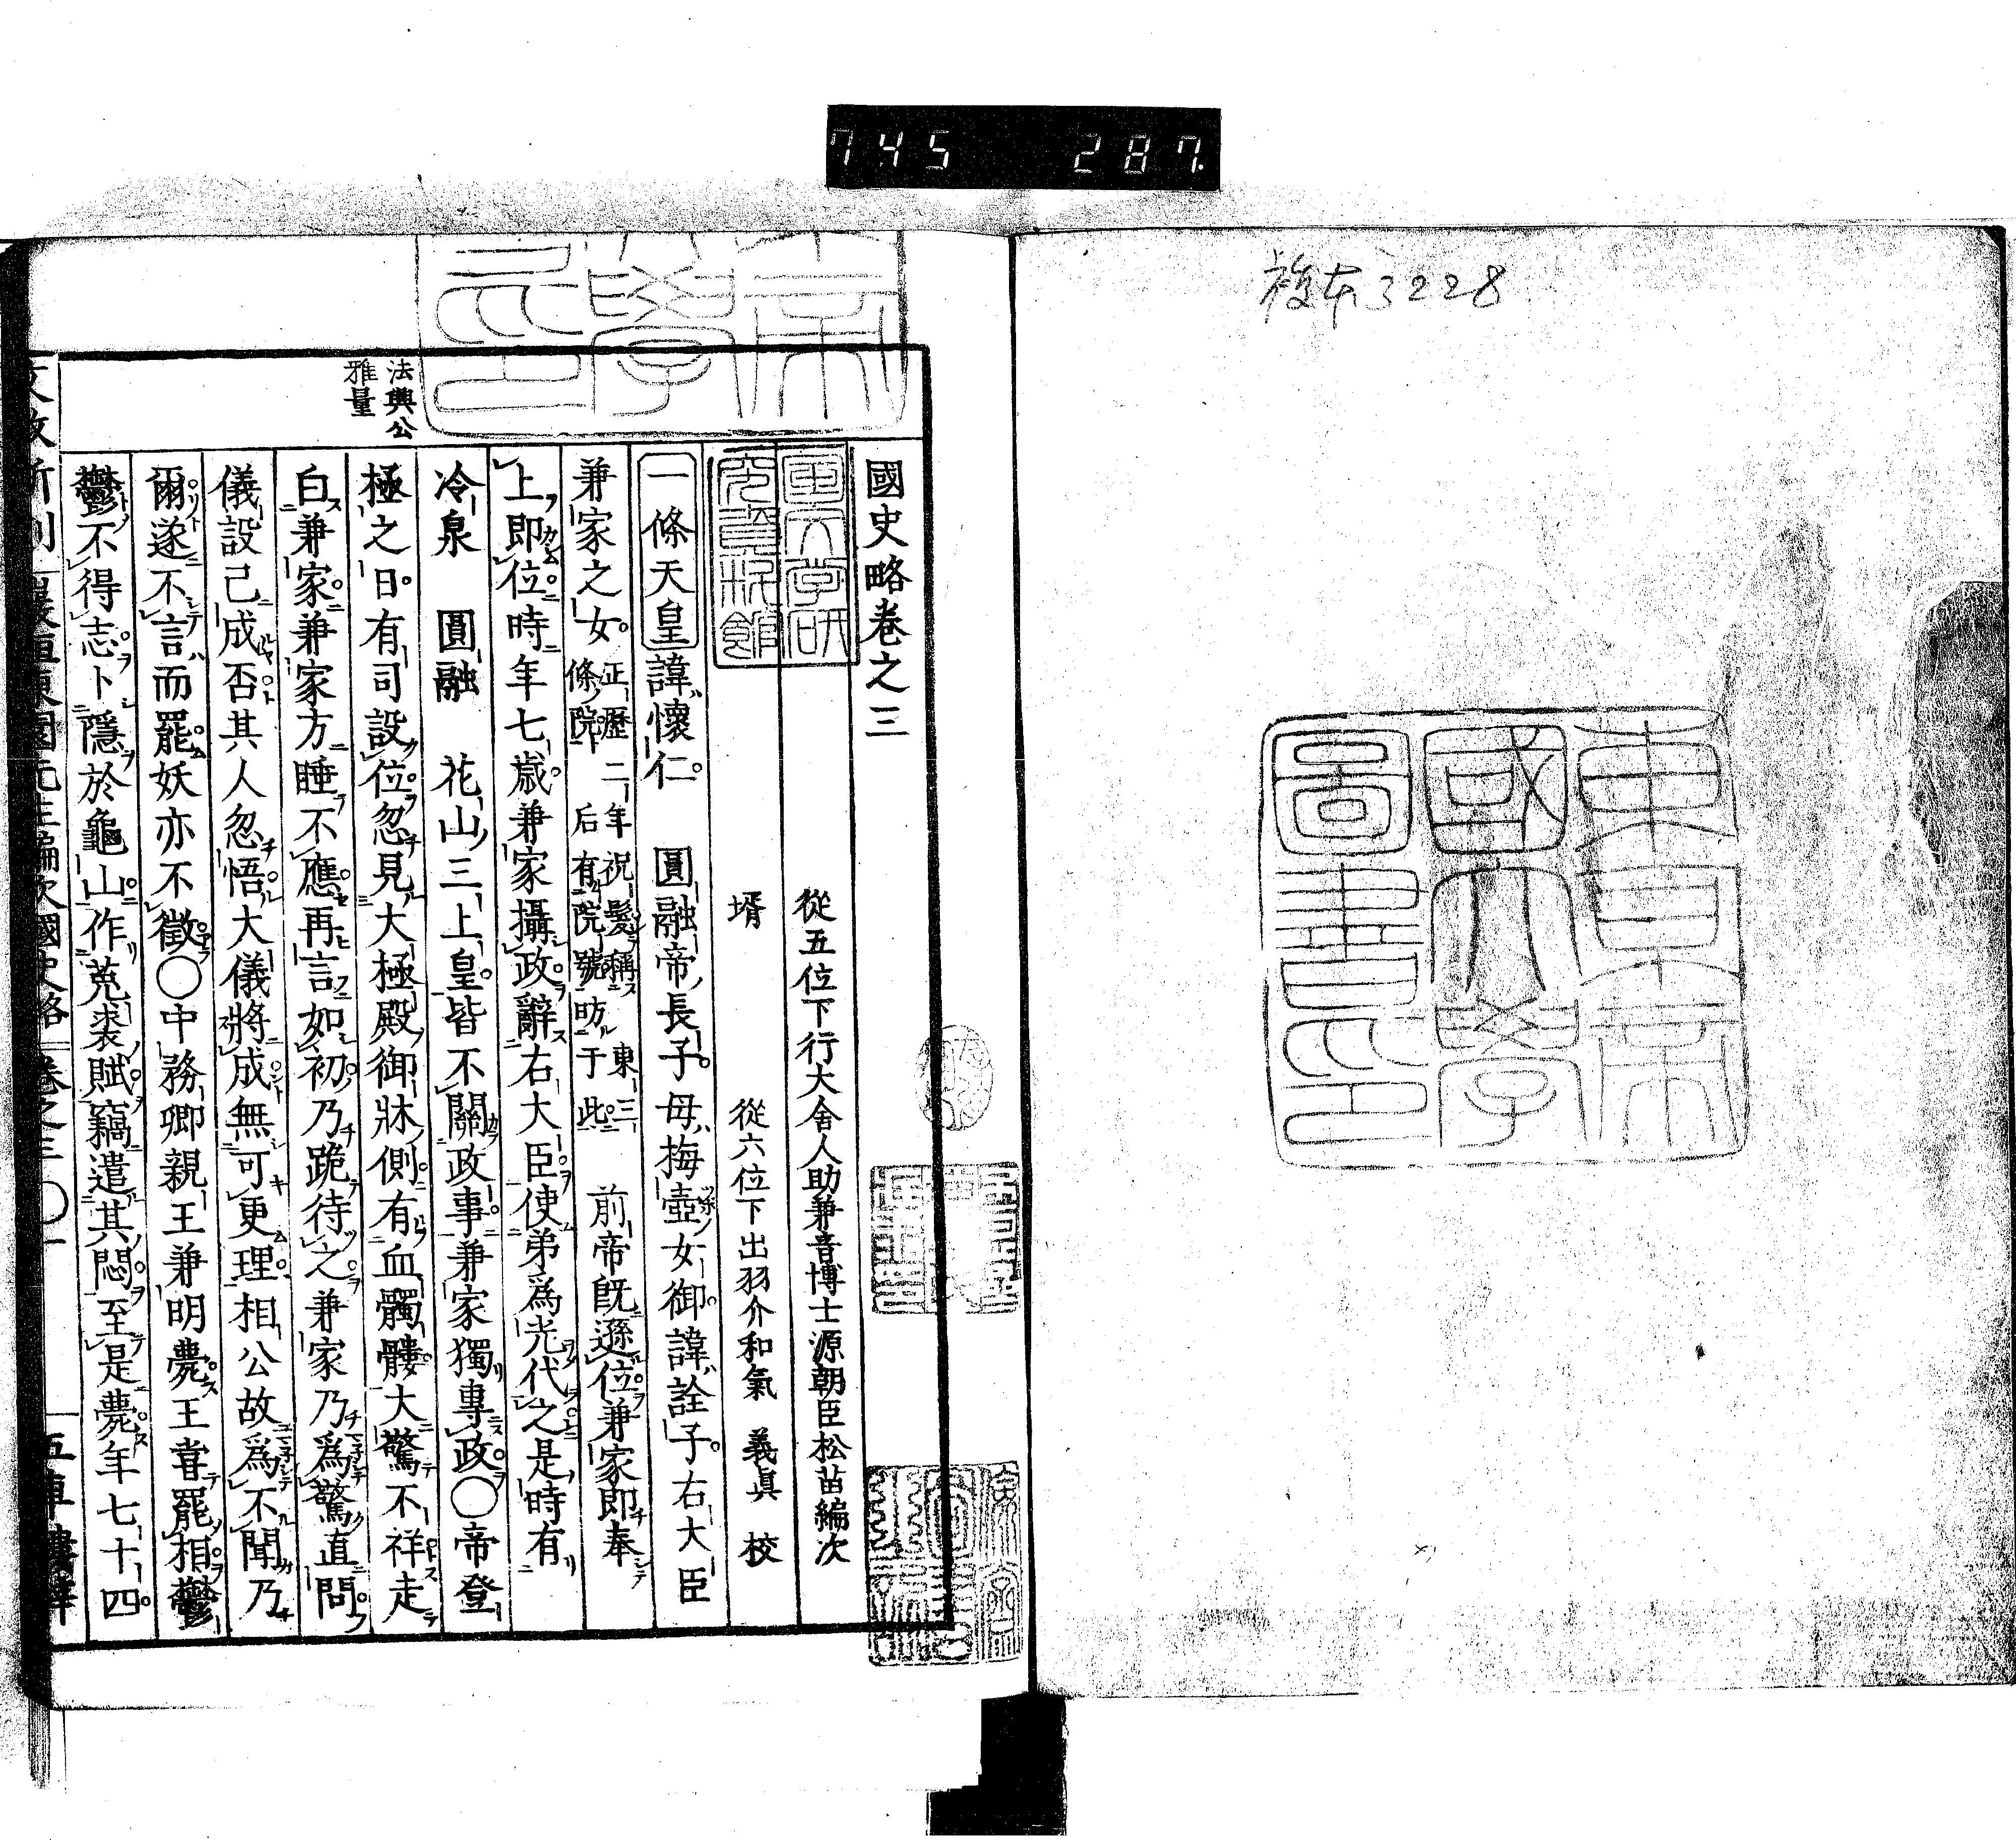 745 287
複本3228
東京
帝國大學
圖書印
國史略卷之三
從五位下行大舍人助兼音博士源朝臣松苗編次
壻 從六位下出羽介和氣 義眞 校
一條天皇諱懷仁。圓融帝長子。母梅壺女御諱詮子。右大臣
兼家之女。正曆二年祝髮稱東三條院后有院號昉于此 前帝旣遜位兼家即奉
上即位時年七歲。兼家攝政辭右大臣使弟爲光代之是時有
冷泉 圓融 花山三上皇。皆不關政事兼家獨專政○帝登
極之日。有司設位忽見大極殿御牀側有血髑髏大驚不祥走
白兼家兼家方睡不應再言如初乃跪待之兼家乃爲驚直問
儀設已成否其人忽悟大儀將成無可更理相公故爲不聞乃
爾遂不言而罷妖亦不徵○中務卿親王兼明薨王嘗罷相鬱
鬱不得志卜隱於龜山作菟裘賦竊遣其悶至是薨年七十四。
法興公
雅量
國史略 卷之三 ○一